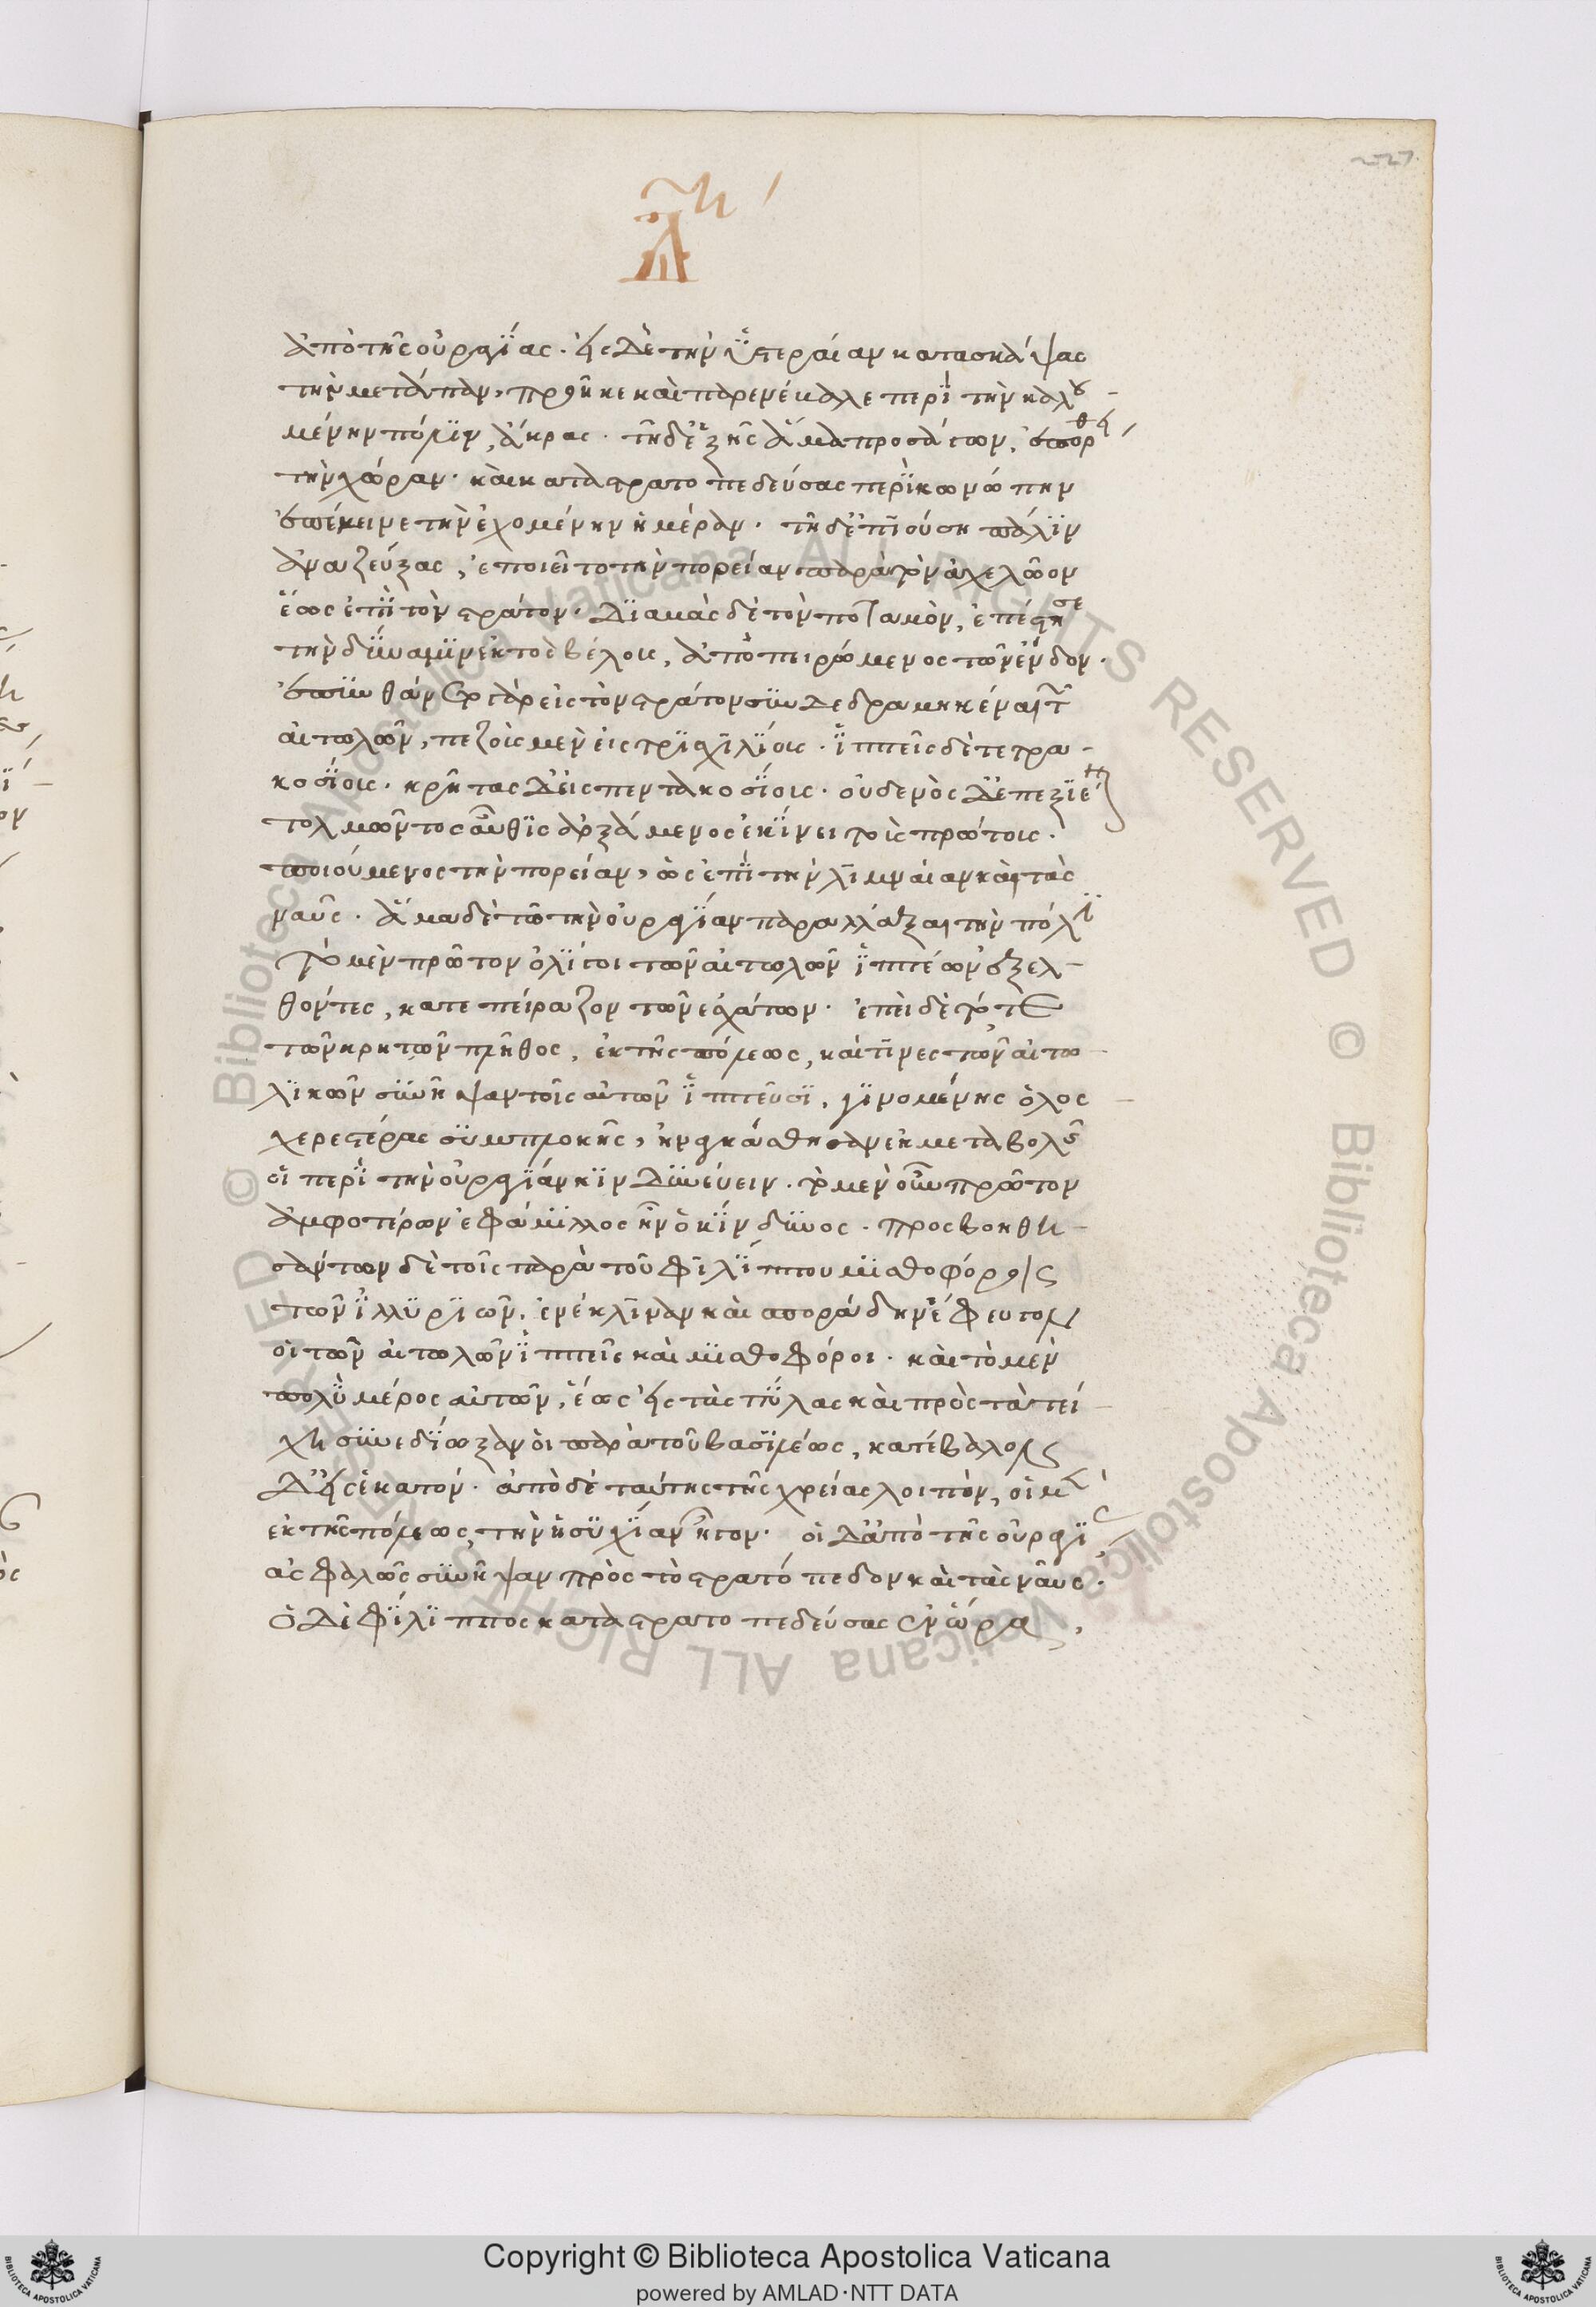 227
ἀπὸ τῆς οὐργίας. εἰς δὲ τὴν ὑστεραίαν κατασκάψας
τὴν μετάπαν, προῆκε καὶ παρενέβαλε περὶ τὴν καλου
μένην πόλιν, ἄκρας. τῇ δ' ἑξῆς ἅμα προσάγων, ἐπόρθει
τὴν χώραν. καὶ καταστρατοπεδεύσας περὶ κωνώπην
ἐπέμεινε τὴν ἐχομένην ἡμέραν. τῇ δ' ἐπιούσῃ πάλιν
ἀναζεύξας, ἐποιεῖτο τὴν πορείαν παρὰ τὸν ἀχελῶον
ἕως ἐπὶ τὸν στράτον. διαβὰς δὲ τὸν ποταμὸν, ἐπέστησε
τὴν δύναμιν ἐκτὸς βέλους, ἀποπειρώμενος τῶν ἔνδον.
ἐπυνθάνετο γὰρ εἰς τὸν στράτον συνδεδραμηκέναι τῶν
αἰτωλῶν, πεζοὺς μὲν εἰς τρισχιλίους. ἱππεῖς δὲ τετρα
κοσίους. κρῆτας δ' εἰς πεντακοσίους. οὐδενὸς δ' ἐπεξιέναι
τολμῶντος αὖθις ἀρξάμενος ἐκίνει τοὺς πρώτους.
ποιούμενος τὴν πορείαν, ὡς ἐπὶ τὴν λιμναίαν καὶ τὰς
ναῦς. ἅμα δὲ τῷ τὴν οὐργίαν παραλλάξαι τὴν πόλιν
τὸ μὲν πρῶτον ὀλίγοι τῶν αἰτωλῶν ἱππέων ἐξελ
θόντες, κατεπείραζον τῶν ἐσχάτων. ἐπεὶ δὲ τό τε
τῶν κρητῶν πλῆθος, ἐκ τῆς πόλεως, καί τινες τῶν αἰτω
λικῶν συνῆψαν τοῖς αὐτῶν ἱππεῦσι, γινομένης ὁλος
χερεστέρας συμπλοκῆς, ἠναγκάσθησαν ἐκ μεταβολῆς
οἱ περὶ τὴν οὐργίαν κινδυνεύειν. τὸ μὲν οὖν πρῶτον
ἀμφοτέρων ἐφάμιλλος ἦν ὁ κίνδυνος. προσβοηθη
σάντων δὲ τοῖς παρὰ τοῦ φιλίππου μισθοφόροις
τῶν ἰλλυριῶν, ἐνέκλιναν καὶ σποράδην ἔφευγον
οἱ τῶν αἰτωλῶν ἱππεῖς καὶ μισθοφόροι. καὶ τὸ μὲν
πολὺ μέρος αὐτῶν, ἕως εἰς τὰς πύλας καὶ πρὸς τὰ τεί
χη συνεδίωξαν οἱ παρὰ τοῦ βασιλέως, κατέβαλον
δ' εἰς ἑκατόν. ἀπὸ δὲ ταύτης τῆς χρείας λοιπὸν, οἱ μὲν
ἐκ τῆς πόλεως, τὴν ἡσυχίαν ἦγον. οἱ δ' ἀπὸ τῆς οὐργίας
ἀσφαλῶς συνῆψαν πρὸς τὸ στρατόπεδον καὶ τὰς ναῦς.
ὁ δὲ φίλιππος καταστρατοπεδεύσας ἐν ὥρᾳ,
Copyright © Biblioteca Apostolica Vaticana
powered by AMLAD·NTT DATA
© Biblioteca Apostolica Vaticana ALL RIGHTS RESERVED © Biblioteca Apostolica Vaticana ALL RIGHTS RESERVED